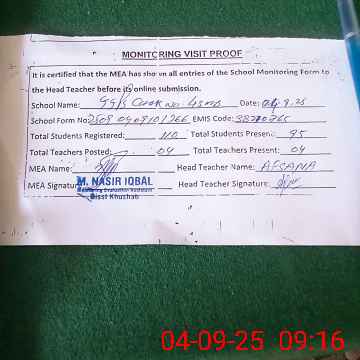 MONITORING VISIT PROOF
It is certified that the MEA has shown all entries of the School Monitoring Form to
the Head Teacher before its online submission.
School Name: GGPS Chak No. 49MB Date: 04.9.25
School Form No: EMIS Code:
Total Students Registered: 110 Total Students Present: 95
Total Teachers Posted: 04 Total Teachers Present: 04
MEA Name: Head Teacher Name: AFSANA
MEA Signature Head Teacher Signature:
M. NASIR IQBAL
Monitoring Evaluation Assistant
Distt Khushab
04-09-25 09:16